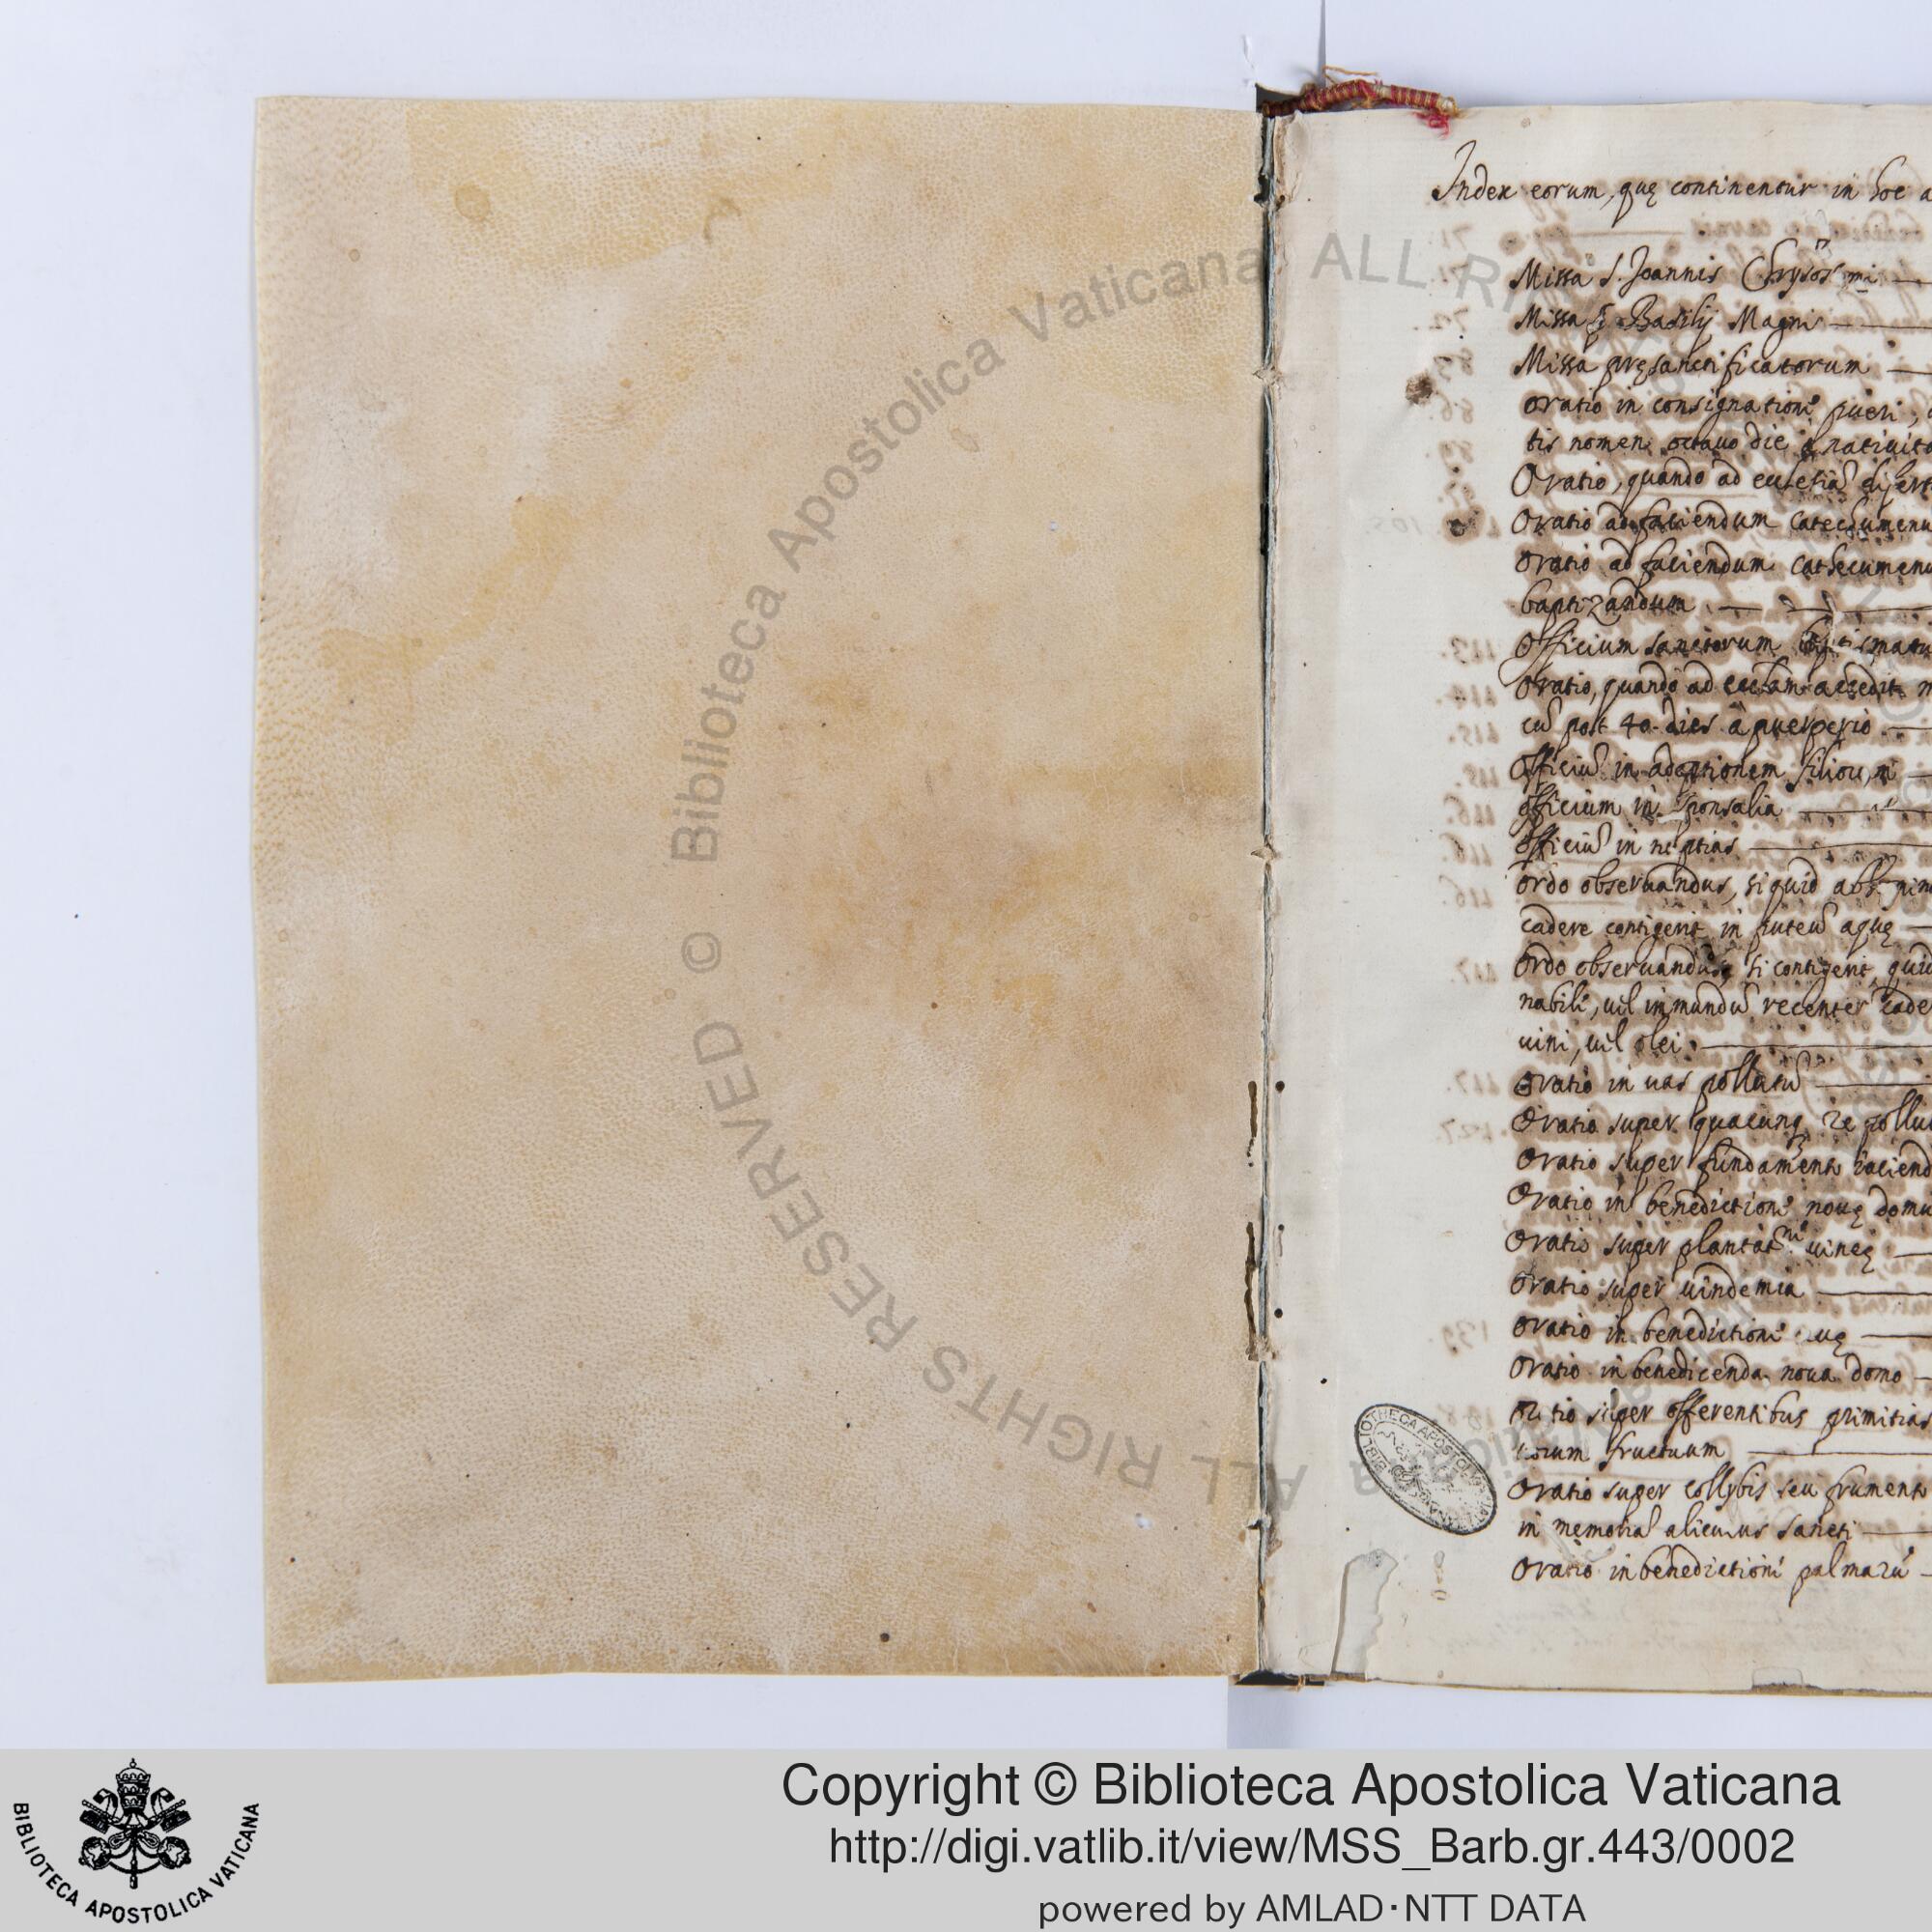 Index eorum, quę continentur in hoc
Missa S. Joannis Chrysosmi
Missa S. Basilij Magni
Missa pręsanctificatorum
Oratio in consignatione pueri,
tis nomen octauo die
Oratio, quando ad
Oratio ad faciendum catechumenu
Oratio ad faciendum cathecumenu
baptizandum
Officium sanctorum
Oratio, quando ad accedit
cũ post 40 dies à puerperio
Officiũ in adoptionem
officium in sponsalia
Officiũ in nuptias
Ordo obseruandus, si quid
cadere contigerit in puteũ aquę
Ordo obseruandus, si contigerit,
nabile, uel inmundũ recenter cade
uini, uel olei
Oratio in uas pollutũ
Oratio super quacunq re pollu
Oratio super
Oratio in benedictione nouę domu
Oratio super uineę
Oratio super uindemia
Oratio in benedictione
Oratio in benedicenda noua domo
super offerentibus primitias
fructuum
Oratio super collybis seu frumento
in memoria alicuius sancti
Oratio in benedictione palmarũ
© Biblioteca Apostolica Vaticana ALL RIGHTS RESERVED
BIBLIOTHECA APOSTOLICA
BIBLIOTECA APOSTOLICA VATICANA
Copyright © Biblioteca Apostolica Vaticana
http://digi.vatlib.it/view/MSS_Barb.gr.443/0002
powered by AMLAD·NTT DATA